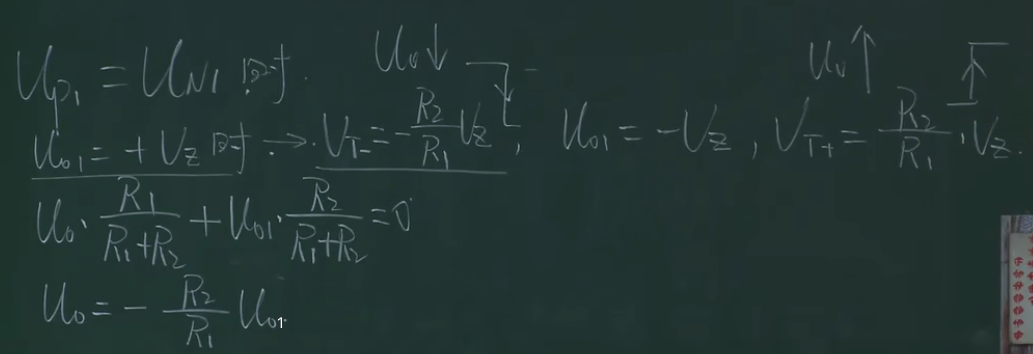 U_{P1} = U_{N1} 时. U_o↓ U_o↑
U_{o1} = +V_Z 时. → V_{T-} = -\frac{R_2}{R_1} V_Z, U_{o1} = -V_Z, V_{T+} = \frac{R_2}{R_1} · V_Z.
U_o · \frac{R_1}{R_1+R_2} + U_{o1} · \frac{R_2}{R_1+R_2} = 0
U_o = - \frac{R_2}{R_1} U_{o1}